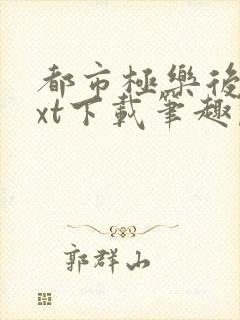 都市極樂後
xt下載筆趣
郭群山